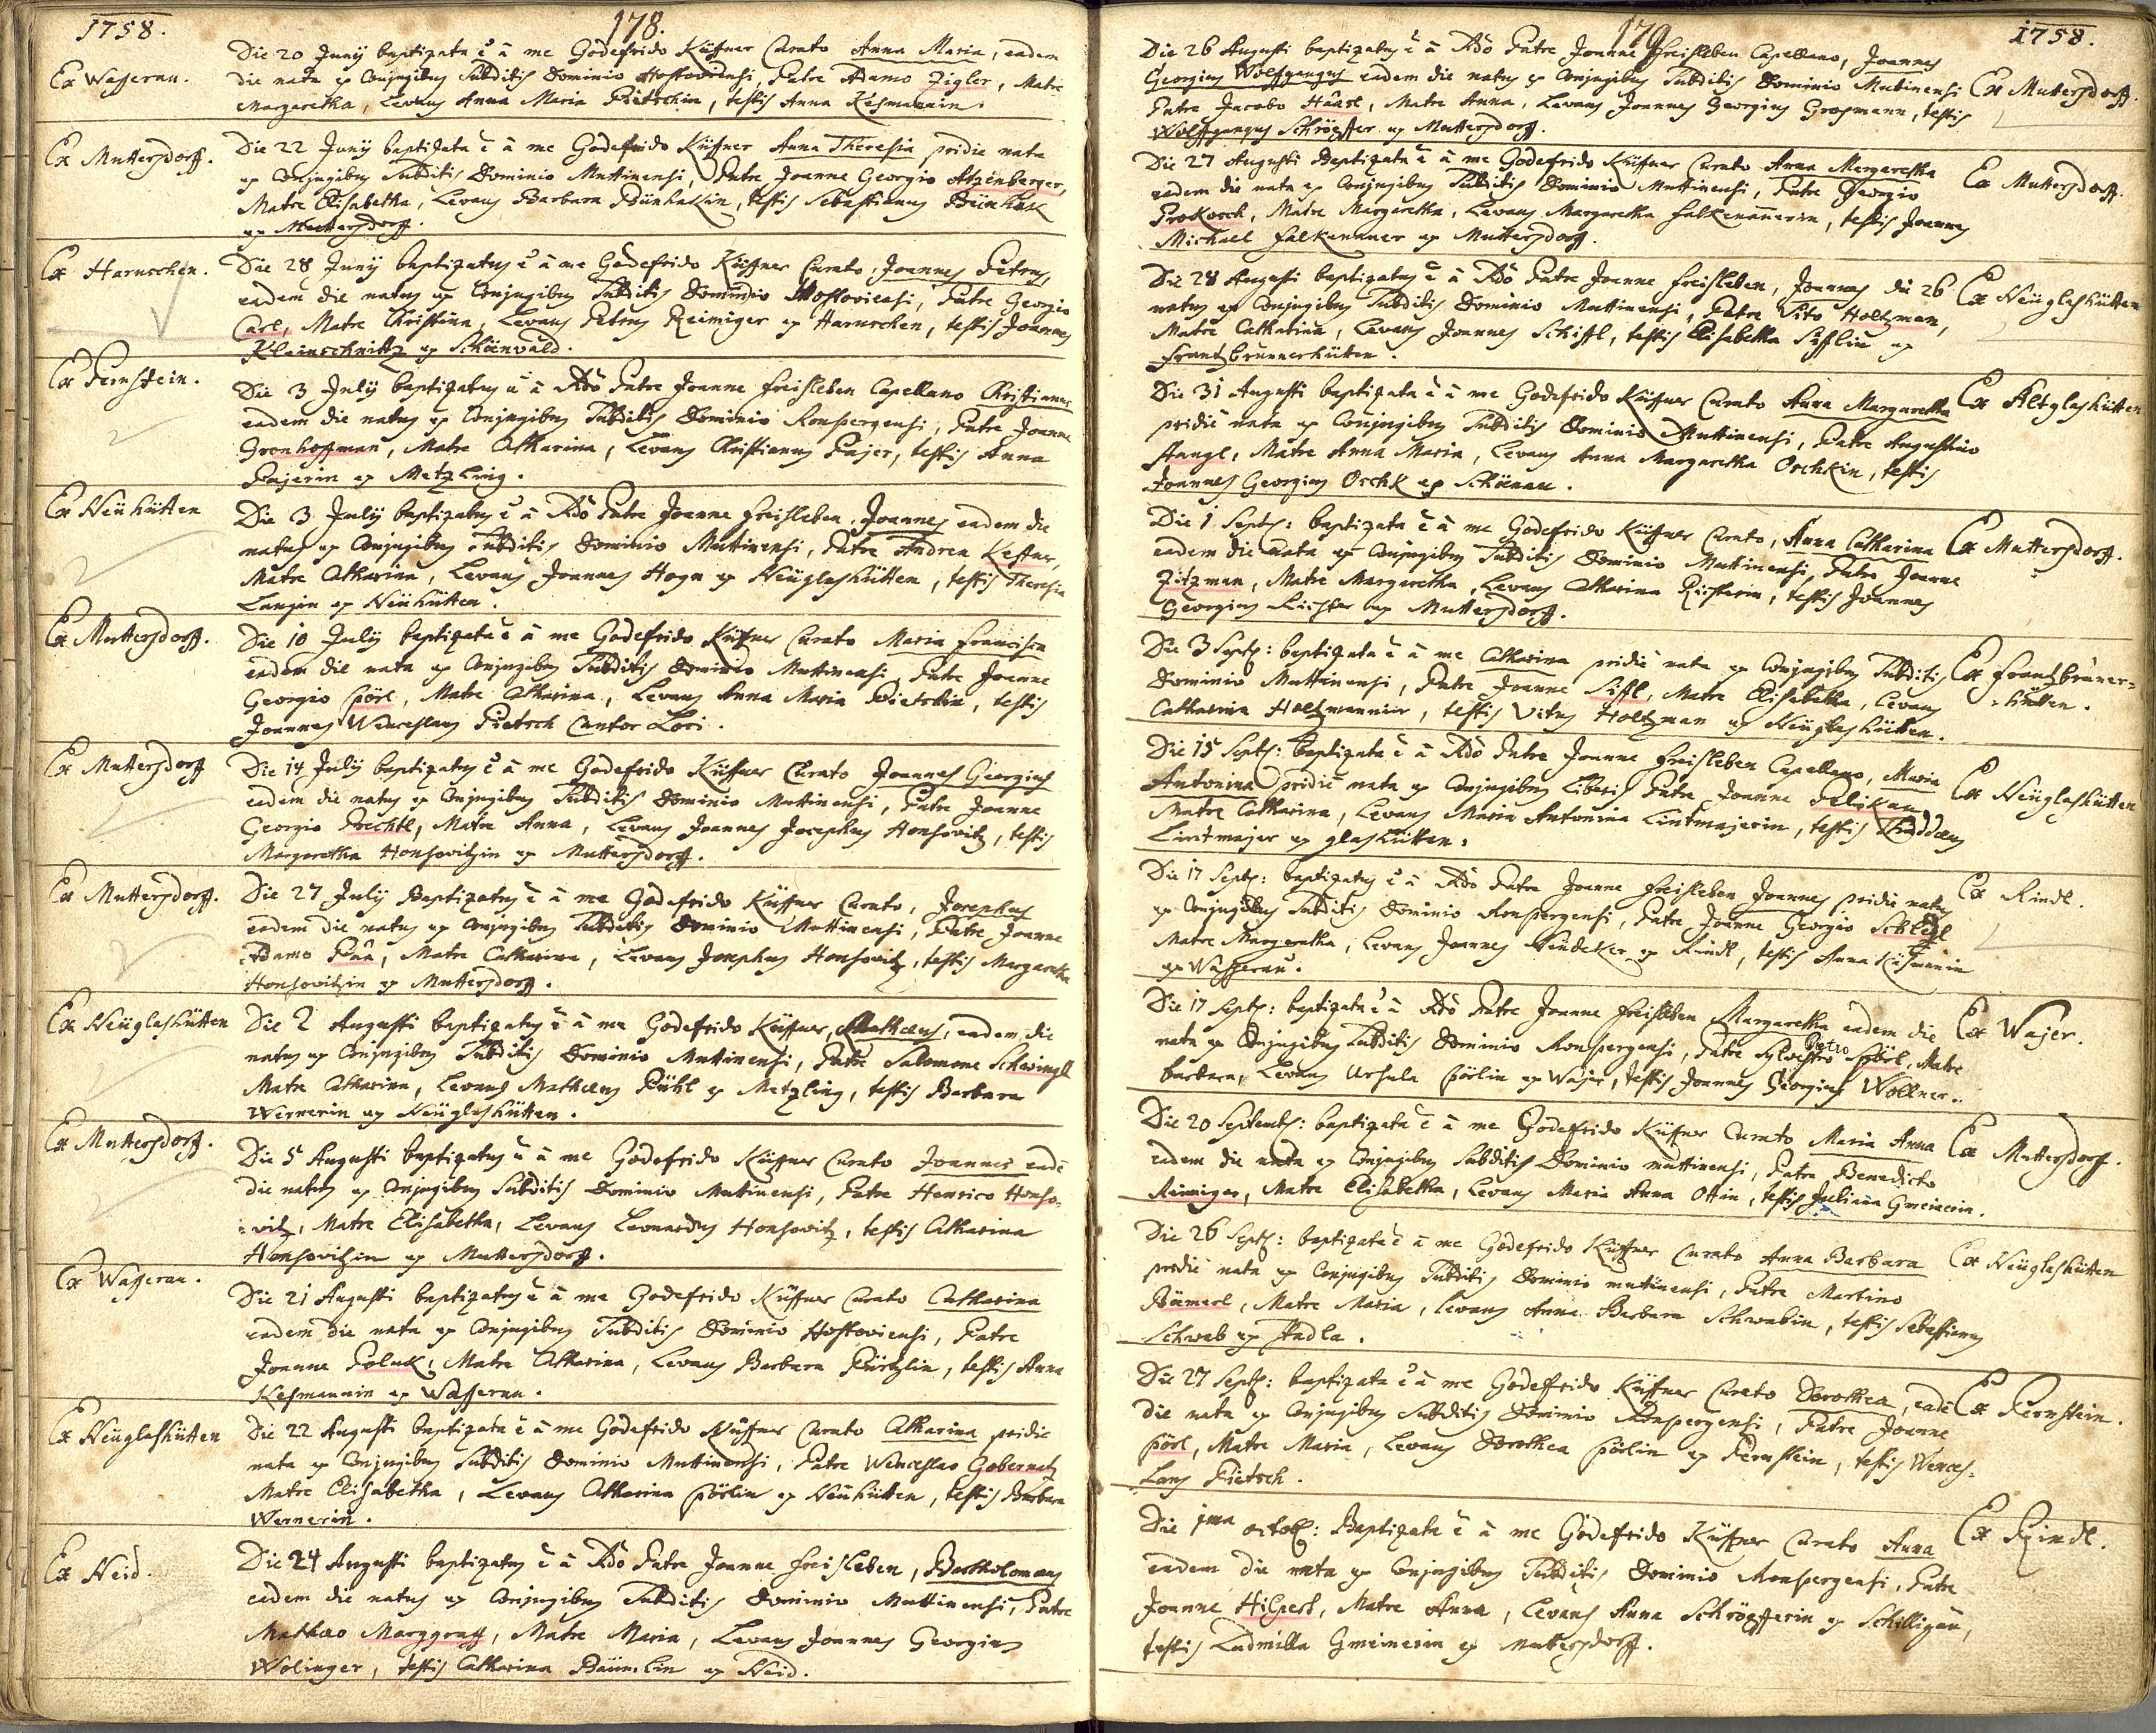 1758.
178.
Ex Wasserau.
Die 20 Junij baptizata ē à me Godefrido Küffner Curato Anna Maria, eadem
die nata ex Conjugibus Subditis Dominio Hostoviensi, Patre Adamo Zigler, Matre
Margaretha, Levans Anna Maria Pietschin, testis Anna Kesmannin.
Ex Muttersdorff.
Die 22 Junij baptizata ē à me Godefrido Küffner Anna Theresia pridie nata
ex Conjugibus Subditis Dominio Muttinensi, Patre Joanne Georgio Atzenberger,
Matre Elisabetha, Levans Barbara testis Sebastianus
ex Muttersdorff.
Ex Haruschen.
Die 28 Junij baptizatus ē à me Godefrido Küffner Curato, Joannes Petrus,
eadem die natus ex Conjugibus Subditis Dominio Hostoviensi, Patre Georgio
Carl, Matre Christina, Levans Petrus Reimiger ex Haruschen, testis Joannes
Kleinschnittz ex Schönwald.
Ex Pernstein.
Die 3 Julij baptizatus ē à Rdō Patre Joanne Freisleben Capellano Christianus
eadem die natus ex Conjugibus Subditis Dominio Ronspergensi, Patre Joanne
Gronhoffman, Matre Catharina, Levans Christianus Pajer, testis Anna
Pajerin ex Metzling.
Ex Neühütten
Die 3 Julij baptizatus ē à Rdō Patre Joanne Freisleben, Joannes eadem die
natus ex Conjugibus Subditis Dominio Muttinensi, Patre Andrea Kestner,
Matre Catharina, Levans Joannes Hogn ex Neüglashütten, testis Theresia
Langin ex Neühütten.
Ex Muttersdorff.
Die 10 Julij baptizata ē à me Godefrido Küffner Curato Maria Francisca
eadem die nata ex Conjugibus Subditis Dominio Muttinensi, Patre Joanne
Georgio Pörl, Matre Catharina, Levans Anna Maria Pietschin, testis
Joannes Wenceslaus Pietsch Cantor Loci.
Ex Muttersdorff
Die 14 Julij baptizatus ē à me Godefrido Küffner Curato Joannes Georgius
eadem die natus ex Conjugibus Subditis Dominio Muttinensi, Patre Joanne
Georgio Prechtl, Matre Anna, Levans Joannes Josephus Honsowitz, testis
Margaretha Honsowitzin ex Muttersdorff.
Ex Muttersdorff.
Die 27 Julij Baptizatus ē à me Godefrido Küffner Curato, Josephus
eadem die natus ex Conjugibus Subditis Dominio Muttinensi, Patre Joanne
Adamo Matre Catharina, Levans Josephus Honsowitz, testis Margaretha
Honsowitzin ex Muttersdorff.
Ex Neüglashütten
Die 2 Augusti baptizatus ē à me Godefrido Küffner, Mathaeus, eadem die
natus ex Conjugibus Subditis Dominio Muttinensi, Patre Salomone Schwingl
Matre Catharina, Levans Mathaeus Pühl ex Metzling, testis Barbara
Wernerin ex Neüglashütten.
Ex Muttersdorff.
Die 5 Augusti baptizatus ē à me Godefrido Küffner Curato Joannes eadē
die natus ex Conjugibus Subditis Dominio Mutinensi, Patre Henrico Honso-
witz, Matre Elisabetha, Levans Leonardus Honsowitz, testis Catharina
Honsowitzin ex Muttersdorff.
Ex Wasserau.
Die 21 Augusti baptizatus ē à me Godefrido Küffner Curato Catharina
eadem die nata ex Conjugibus Subditis Dominio Hostoviensi, Patre
Joanne Polak, Matre Catharina, Levans Barbara Pürtzlin, testis Anna
Kesmannin ex Wasserau.
Ex Neüglashütten
Die 22 Augusti baptizata ē à me Godefrido Küffner Curato Catharina pridie
nata ex Conjugibus Subditis Dominio Muttinensi, Patre Wenceslao Gobernatz
Matre Elisabetha, Levans Catharina Pörlin ex Neühütten, testis Barbara
Wernerin.
Ex Neid.
Die 24 Augusti baptizatus ē à Rdō Patre Joanne Freisleben, Bartholomaeus
eadem die natus ex Conjugibus Subditis Dominio Muttinensi, Patre
Mathaeo Marggraff, Matre Maria, Levans Joannes Georgius
Wolinger, testis Catharina Bäümlin ex Neid.
179
1758.
Die 26 Augusti baptizatus ē à Rdō Patre Joanne Freisleben Capellano, Joannes
Georgius Wolffgangus eadem die natus ex Conjugibus Subditis Dominio Mutinensi
Patre Jacobo Haasl, Matre Anna, Levans Joannes Georgius Grosmann, testis
Wolffgangus Schröpffer ex Muttersdorff.
Ex Muttersdorff.
Die 27 Augusti Baptizata ē à me Godefrido Küffner Curato Anna Margaretha
eadem die nata ex Conjugibus Subditis Dominio Muttinensi, Patre Georgio
Prokosch, Matre Margaretha, Levans Margaretha Falkenauerin, testis Joannes
Michael Falkenauer ex Muttersdorff.
Ex Muttersdorff.
Die 28 Augusti baptizatus ē à Rdō Patre Joanne Freisleben, Joannes die 26
natus ex Conjugibus Subditis Dominio Muttinensi, Patre Vito Holtzman,
Matre Catharina, Levans Joannes Schiffl, testis Elisabetha Siflin ex
Frantzbrunnerhütten.
Ex Neüglashütten
Die 31 Augusti baptizata ē à me Godefrido Küffner Curato Anna Margaretha
pridie nata ex Conjugibus Subditis Dominio Muttinensi, Patre Augustino
Stangl, Matre Anna Maria, Levans Anna Margaretha Oschkin, testis
Joannes Georgius Oschk ex Schönau.
Ex Altglashütten
Die 1 Septs: baptizata ē à me Godefrido Küffner Curato, Anna Catharina
eadem die nata ex Conjugibus Subditis Dominio Muttinensi, Patre Joanne
Zitzman, Matre Margaretha, Levans Catharina Richterin, testis Joannes
Georgius Richter ex Muttersdorff.
Ex Muttersdorff.
Die 3 Septs: baptizata ē à me Catharina pridie nata ex Conjugibus Subditis
Dominio Muttinensi, Patre Joanne Siffl, Matre Elisabetha, Levans
Catharina Holtzmannin, testis Vitus Holtzman ex Neüglashütten.
Ex Frantzbruner-
hütten.
Die 15 Septs: baptizata ē à Rdō Patre Joanne Freisleben Capellano, Maria
Antonina pridie nata ex Conjugibus Liberis Patre Joanne Pelikan
Matre Catharina, Levans Maria Antonina Lintmajerin, testis Thaddaeus
Lintmajer ex glashütten.
Ex Neüglashütten
Die 17 Septs: baptizatus ē à Rdō Patre Joanne Freisleben Joannes pridie natus
ex Conjugibus Subditis Dominio Ronspergensi, Patre Joanne Georgio Schlegl
Matre Margaretha, Levans Joannes ex Rindl, testis Anna Küsmanin
ex Wasserau.
Ex Rindl.
Die 17 Septs: baptizata ē à Rdō Patre Joanne Freisleben Margaretha eadem die
nata ex Conjugibus Subditis Dominio Ronspergensi, Patre Sylvestro Petro Pörl, Matre
Barbara, Levans Ursula Pörlin ex Wajer, testis Joannes Georgius Wollner.
Ex Wajer.
Die 20 Septemb: baptizata ē à me Godefrido Küffner Curato Maria Anna
eadem die nata ex Conjugibus Subditis Dominio muttinensi, Patre Benedicto
Reiniger, Matre Elisabetha, Levans Maria Anna Ottin, testis Juliana Gmeinerin.
Ex Muttersdorff.
Die 26 Septs: baptizata ē à me Godefrido Küffner Curato Anna Barbara
pridie nata ex Conjugibus Subditis Dominio mutinensi, Patre Martino
Bäümerl, Matre Maria, Levans Anna Barbara Schwabin, testis Sebastianus
Schwab ex Stadla.
Ex Neüglashütten
Die 27 Septs: baptizata ē à me Godeffrido Küffner Curato Dorothea, eadē
die nata ex Conjugibus Subditis Dominio Ronspergensi, Patre Joanne
Pörl, Matre Maria, Levans Dorothea Pörlin ex Pernstein, testis Wences-
laus Pietsch.
Ex Pernstein.
Die 1ma octob: Baptizata ē à me Godefrido Küffner Curato Anna
eadem die nata ex Conjugibus Subditis Dominio Ronspergensi, Patre
Joanne Hilpert, Matre Anna, Levans Anna Schröpfferin ex Schilligau,
testis Ludmilla Gmeinerin ex Muttersdorff.
Ex Rindl.